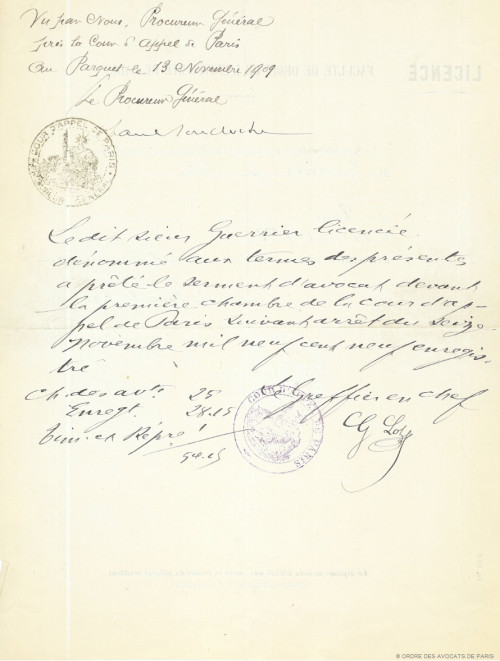 Vu par Nous, Procureur Général
près la Cour d'Appel de Paris
au Parquet le 13 Novembre 1909
Le Procureur Général
COUR D'APPEL DE PARIS
Le dit sieur Guerrier licencié
dénommé aux termes des présentes
a prêté le serment d'avocat devant
la première chambre de la cour d'ap-
pel de Paris suivant arrêt du seize
novembre mil neuf cent neuf enregis-
tré
Ch. des av.ts 25
Enregt. 28.15
Le Greffier en chef
COUR D'APPEL DE PARIS
© ORDRE DES AVOCATS DE PARIS